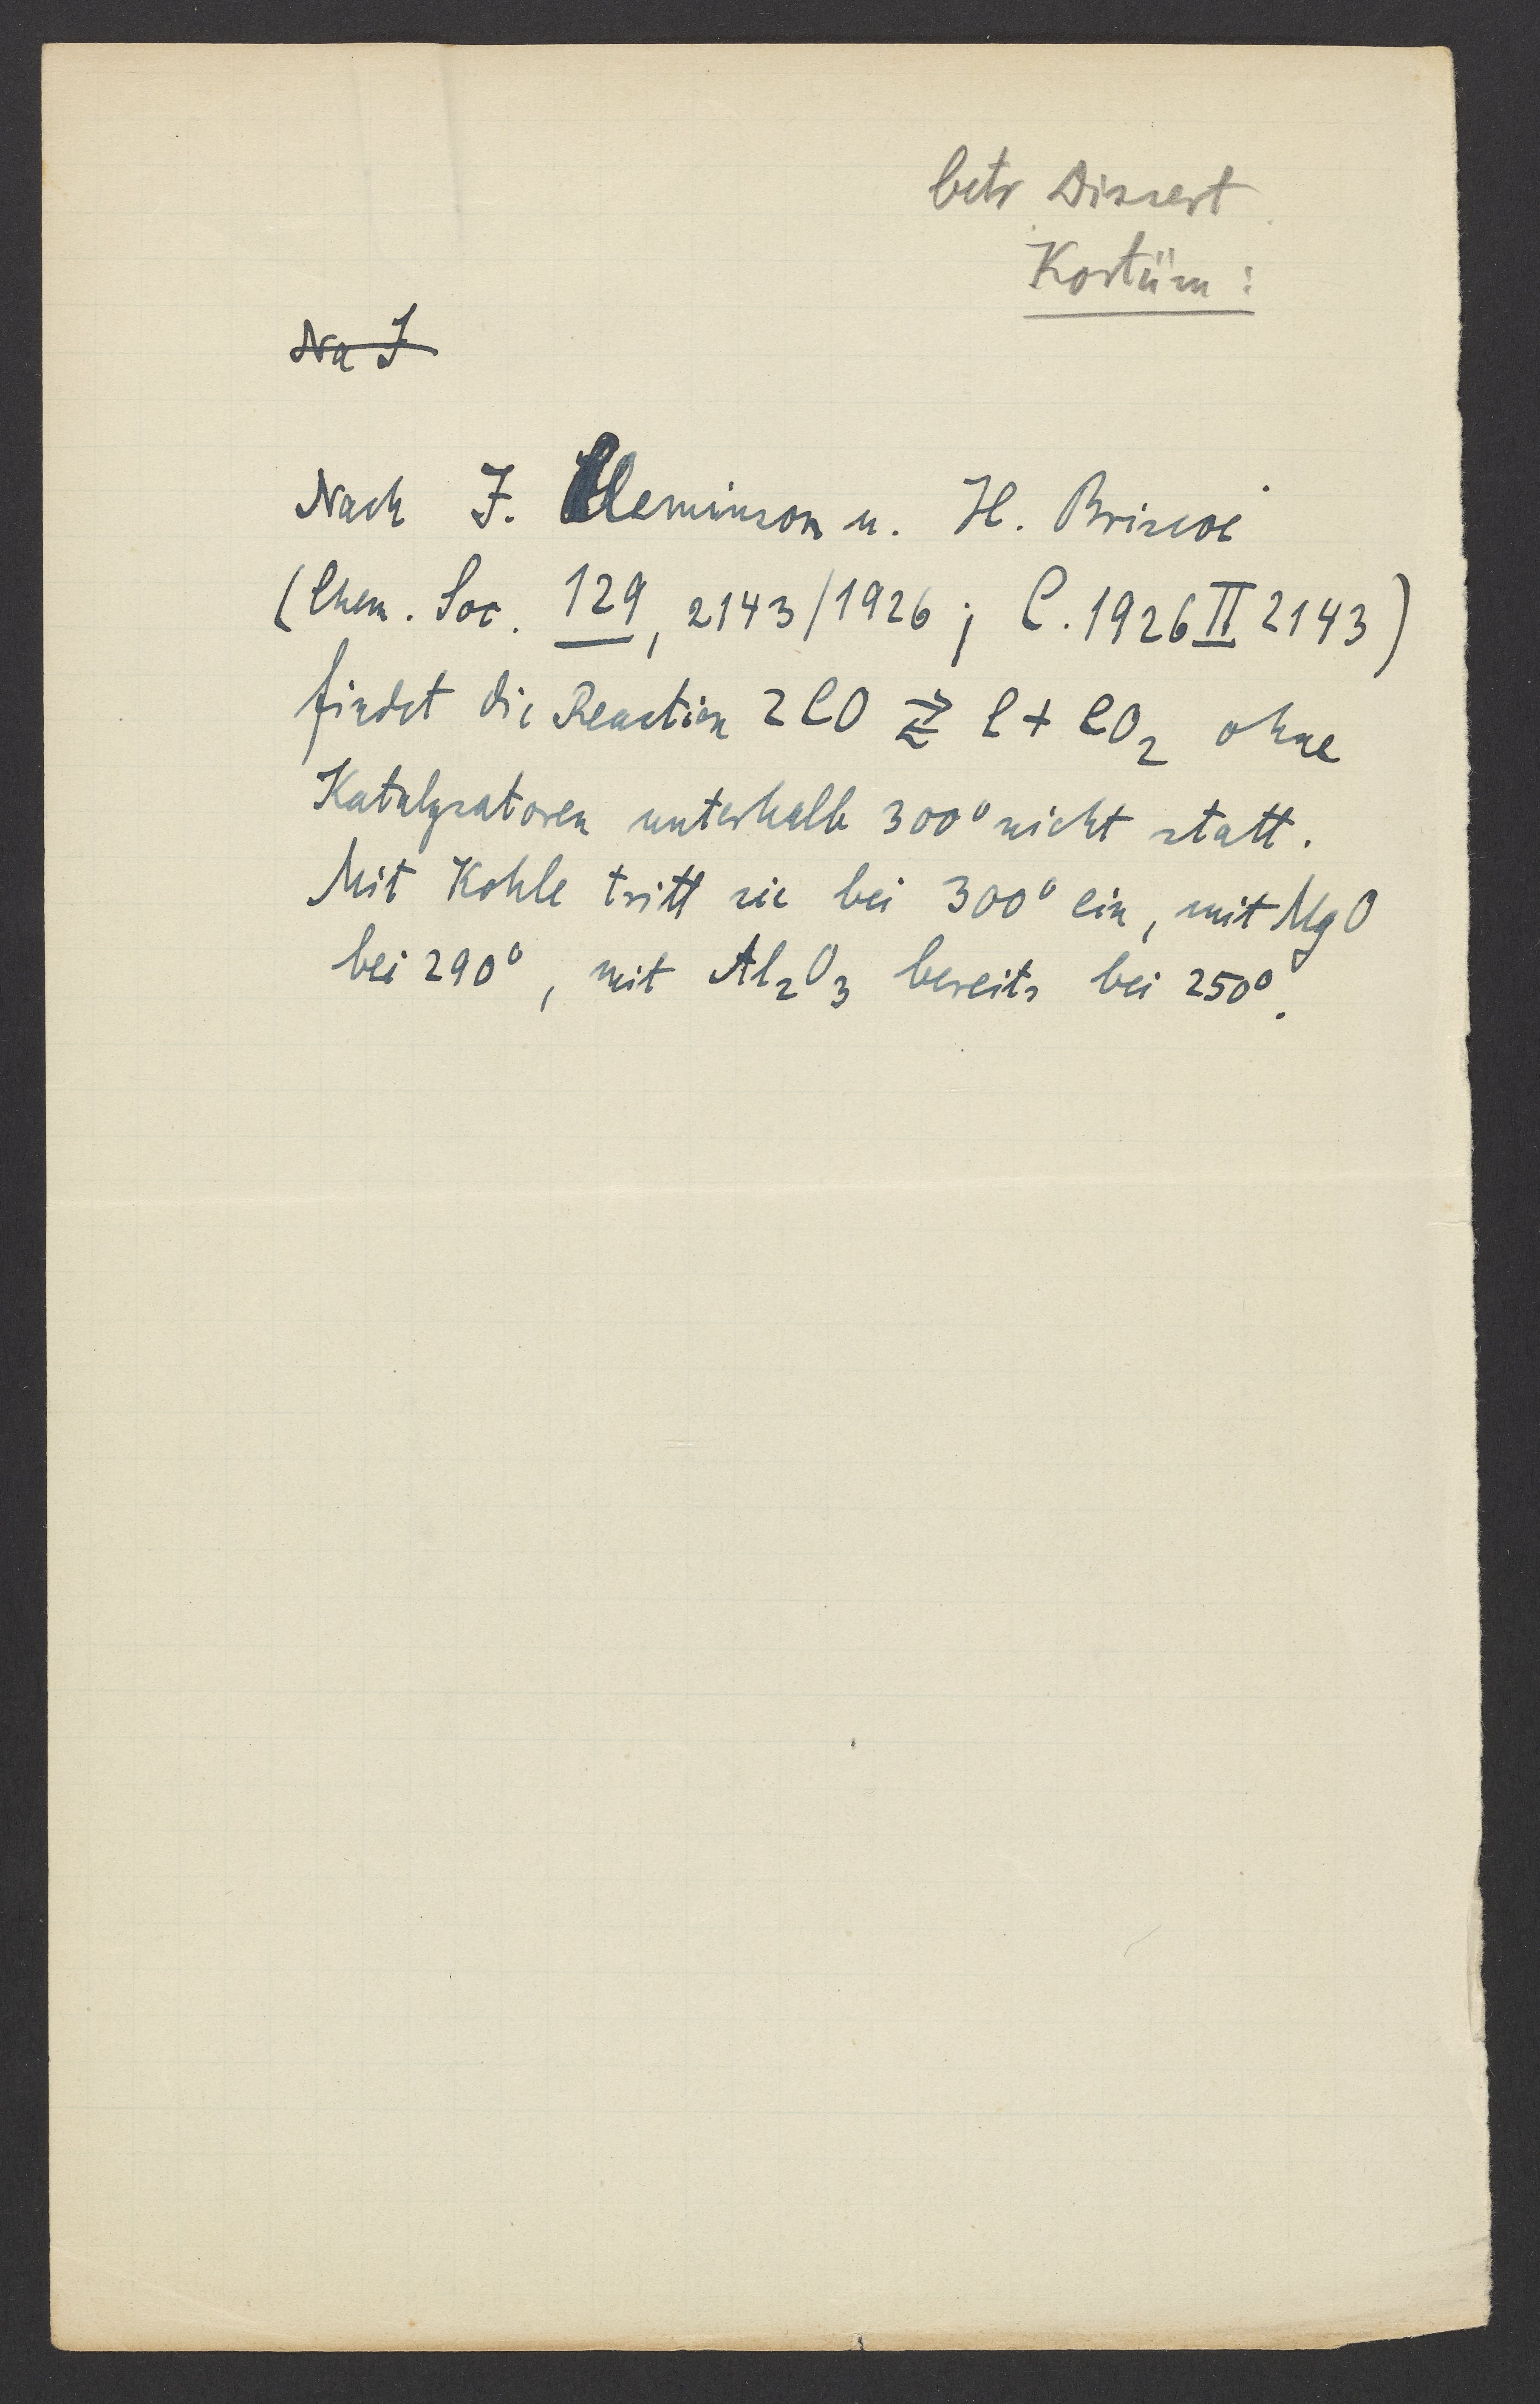 betr Dissert
Kortüm:
Na J
Nach J. Cleminson u. H. Briscoe
(Chem. Soc. 129, 2143/1926; C. 1926 II 2143)
findet die Reaction 2 CO ⇄ C + CO₂ ohne
Katalysatoren unterhalb 300° nicht statt.
Mit Kohle tritt sie bei 300° ein, mit MgO
bei 290°, mit Al₂O₃ bereits bei 250°.